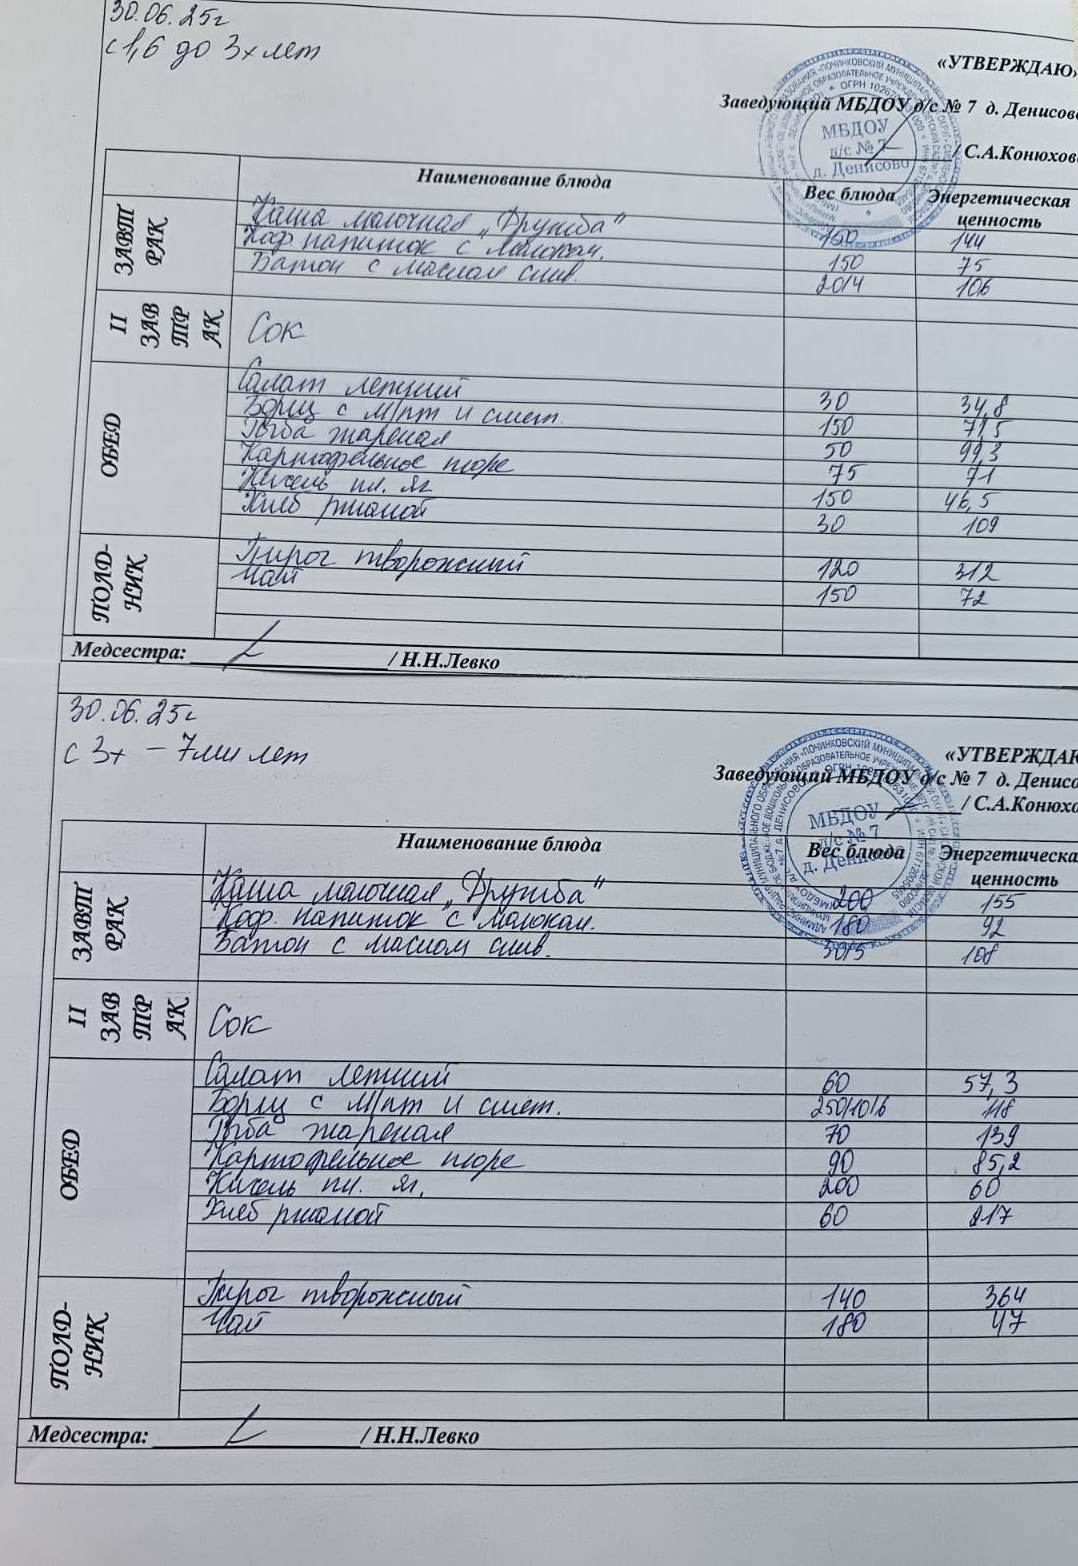 30.06.25г
с 1,6 до 3х лет
«УТВЕРЖДАЮ»
Заведующий МБДОУ д/с № 7 д. Денисово
/ С.А.Конюхова
МБДОУ
д/с № 7
д. Денисово
Наименование блюда Вес блюда Энергетическая ценность
ЗАВТРАК
Каша молочная „Дружба" 150 144
Коф. напиток с молоком. 150 75
Батон с маслом слив. 20/4 106
II ЗАВТРАК
Сок
ОБЕД
Салат летний 30 34,8
Борщ с м/пт и смет. 150 71,5
Рыба жареная 50 99,3
Картофельное пюре 75 71
Кисель пл. яг. 150 46,5
Хлеб ржаной 30 109
ПОЛДНИК
Пирог творожный 120 312
Чай 150 72
Медсестра: / Н.Н.Левко
30.06.25г
с 3х – 7ми лет
«УТВЕРЖДАЮ
Заведующий МБДОУ д/с № 7 д. Денисо
/ С.А.Конюхо
МБДОУ
д/с № 7
д. Денисово
Наименование блюда Вес блюда Энергетическая ценность
ЗАВТРАК
Каша молочная „Дружба" 200 155
Коф. напиток с молоком. 180 92
Батон с маслом слив. 30/5 108
II ЗАВТРАК
Сок
ОБЕД
Салат летний 60 57,3
Борщ с м/пт и смет. 250/10/6 118
Рыба жареная 70 139
Картофельное пюре 90 85,2
Кисель пл. яг. 200 60
Хлеб ржаной 60 217
ПОЛДНИК
Пирог творожный 140 364
Чай 180 47
Медсестра: / Н.Н.Левко